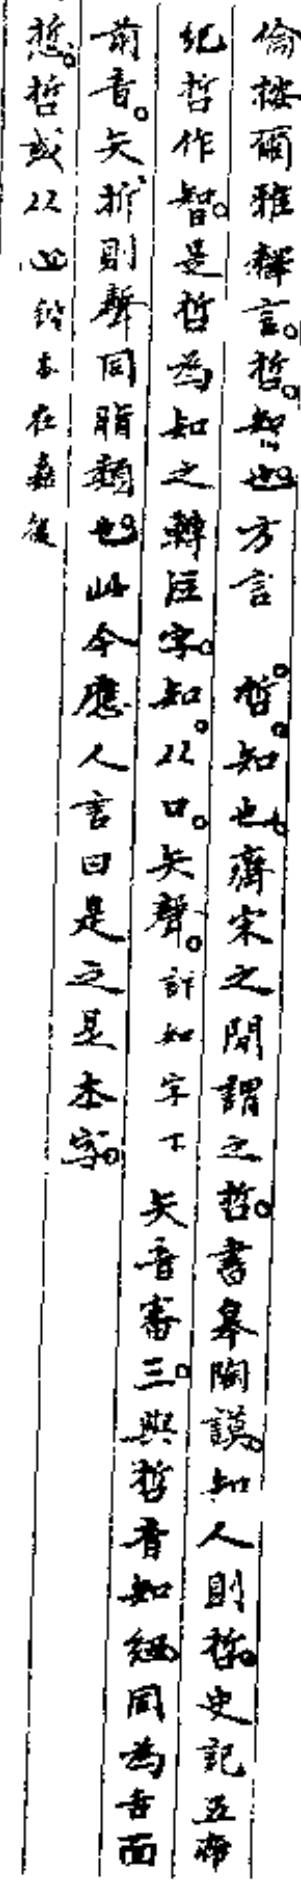 倫按爾雅釋言。哲。智也。方言　哲。知也。齊宋之間謂之哲。書皋陶謨。知人則哲。史記五帝
紀哲作智。是哲為知之轉注字。知。从口。矢聲。詳知字下　矢音審三。與哲音知紐同為舌面
前音。矢折則聲同脂類也。此今應人言曰是之是本字。
悊。哲或从心鉉本在嚞後